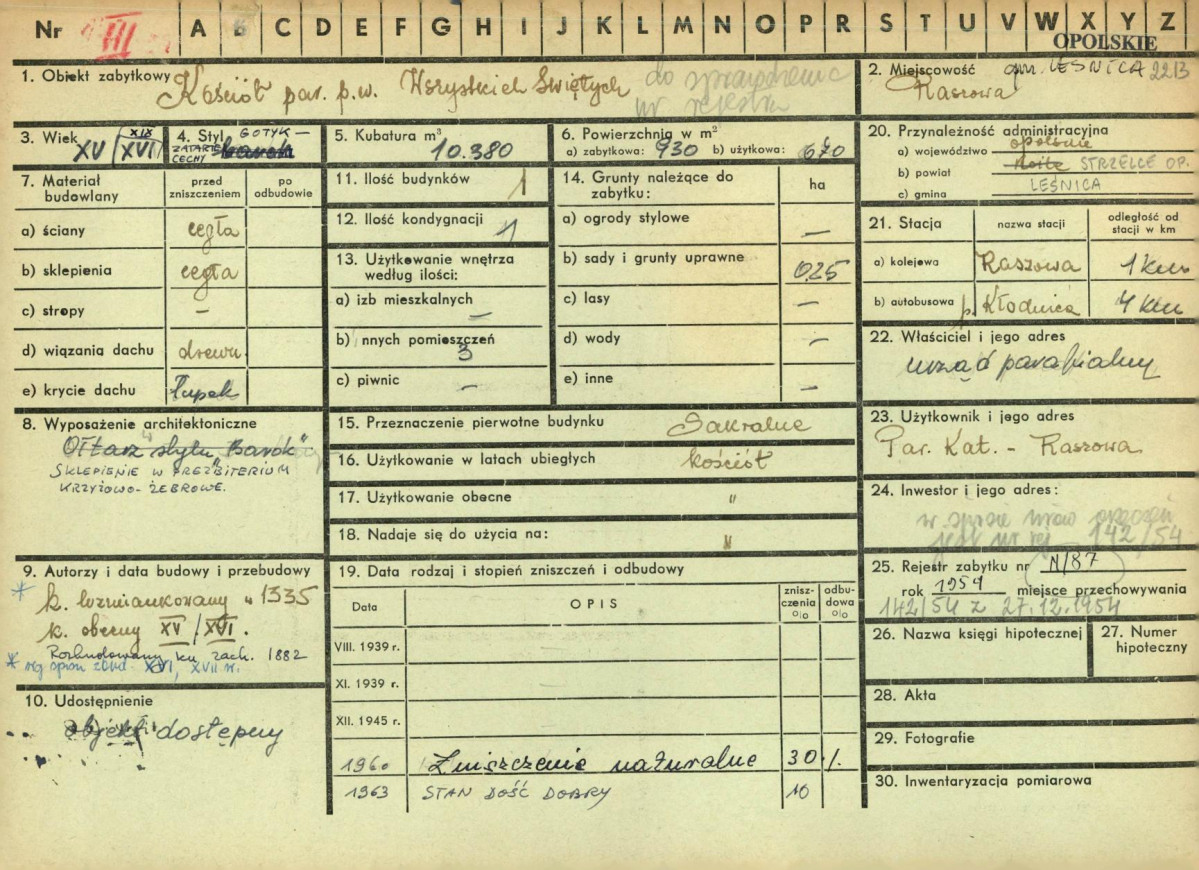 Nr VIII A B C D E F G H I J K L M N O P R S T U V W X Y Z
OPOLSKIE
1. Obiekt zabytkowy Kościół par. p.w. Wszystkich Świętych do sprawdzenia
nr rejestru
2. Miejscowość gm. LEŚNICA 2213
Raszowa
3. Wiek XV/XVI XIX
4. Styl GOTYK –
ZATARTE CECHY barok
5. Kubatura m³
10.380
6. Powierzchnia w m²
a) zabytkowa: 930 b) użytkowa: 670
20. Przynależność administracyjna
a) województwo opolskie
b) powiat Koźle STRZELCE OP.
c) gmina LEŚNICA
7. Materiał budowlany
przed zniszczeniem
po odbudowie
a) ściany cegła
b) sklepienia cegła
c) stropy –
d) wiązania dachu drewn.
e) krycie dachu łupek
11. Ilość budynków 1
12. Ilość kondygnacji 1
13. Użytkowanie wnętrza
według ilości:
a) izb mieszkalnych –
b) innych pomieszczeń
3
c) piwnic –
14. Grunty należące do
zabytku:
ha
a) ogrody stylowe –
b) sady i grunty uprawne 0,25
c) lasy –
d) wody –
e) inne –
21. Stacja
nazwa stacji
odległość od stacji w km
a) kolejowa Raszowa 1 km
b) autobusowa p. Kłodnica 4 km
22. Właściciel i jego adres
urząd parafialny
8. Wyposażenie architektoniczne
Ołtarz stylu "Barok"
SKLEPIENIE W PREZBITERIUM
KRZYŻOWO-ŻEBROWE.
15. Przeznaczenie pierwotne budynku Sakralne
16. Użytkowanie w latach ubiegłych kościół
17. Użytkowanie obecne "
18. Nadaje się do użycia na: "
23. Użytkownik i jego adres
Par. Kat. - Raszowa
24. Inwestor i jego adres:
w spisie
jest nr rej 142/54
9. Autorzy i data budowy i przebudowy
k. wzmiankowany w 1335
k. obecny XV/XVI.
Rozbudowany ku zach. 1882
* wg spisu zbud. XVI, XVII w.
19. Data rodzaj i stopień zniszczeń i odbudowy
Data
OPIS
zniszczenia o/o
odbudowa o/o
VIII. 1939 r.
XI. 1939 r.
XII. 1945 r.
1960 Zniszczenie naturalne 30 %
1963 STAN DOŚĆ DOBRY 10
25. Rejestr zabytku nr N/87
rok 1954 miejsce przechowywania
142/54 z 27.12.1954
26. Nazwa księgi hipotecznej
27. Numer hipoteczny
10. Udostępnienie
objekt dostępny
28. Akta
29. Fotografie
30. Inwentaryzacja pomiarowa